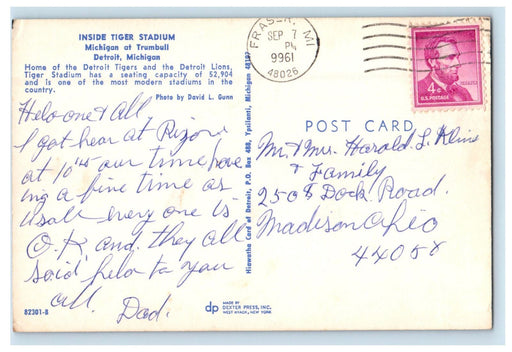 INSIDE TIGER STADIUM
Michigan at Trumbull
Detroit, Michigan
Home of the Detroit Tigers and the Detroit Lions,
Tiger Stadium has a seating capacity of 52,904
and is one of the most modern stadiums in the
country.
Photo by David L. Gunn
Helo one & All,
I got hear at
at 10'45 our time have
ing a fine time as
usall every one is
O.K and. they all
said helo to you
all. Dad.
82301-B
Hiawatha Card of Detroit, P.O. Box 488, Ypsilanti, Michigan 48197
dp
MADE BY
DEXTER PRESS, INC.
WEST NYACK, NEW YORK
FRASER, MI
SEP 7
PM
9961
48026
4¢
U.S. POSTAGE
POST CARD
Mr. & Mrs. Harold L. Kline
& Family
2508 Dock Road.
Madison Ohio
44058